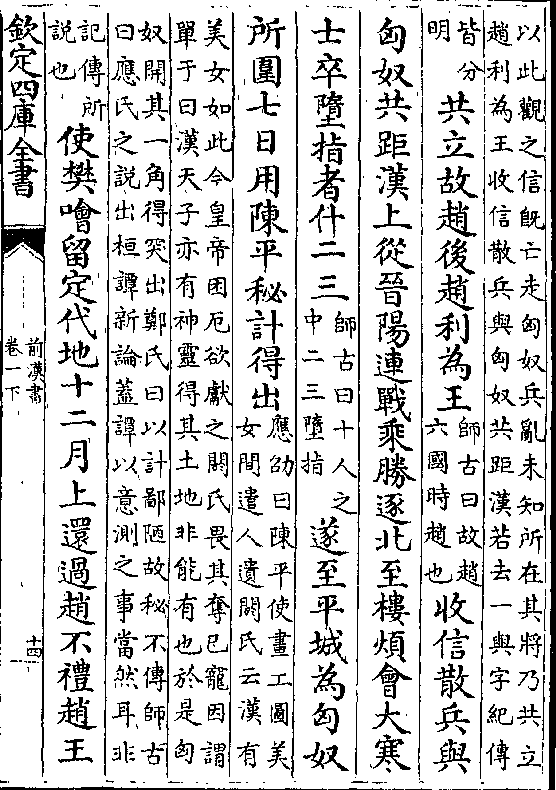 以此觀之信旣亡走匈奴兵亂未知所在其將乃共立
趙利為王收信散兵與匈奴共距漢若去一與字紀傳
皆分
明
共立故趙後趙利為王
師古曰故趙
六國時趙也
收信散兵與
匈奴共距漢上從晉陽連戰乘勝逐北至樓煩會大寒
士卒墮指者什二三
師古曰十人之
中二三墮指
遂至平城為匈奴
所圍七日用陳平秘計得出
應劭曰陳平使畫工圖美
女間遣人遺閼氏云漢有
美女如此今皇帝困厄欲獻之閼氏畏其奪已寵因謂
單于曰漢天子亦有神靈得其土地非能有也於是匈
奴開其一角得突出鄭氏曰以計鄙陋故秘不傳師古
曰應氏之説出桓譚新論蓋譚以意測之事當然耳非
記傳所
説也
使樊噲留定代地十二月上還過趙不禮趙王
欽定四庫全書
前漢書
卷一下
十四